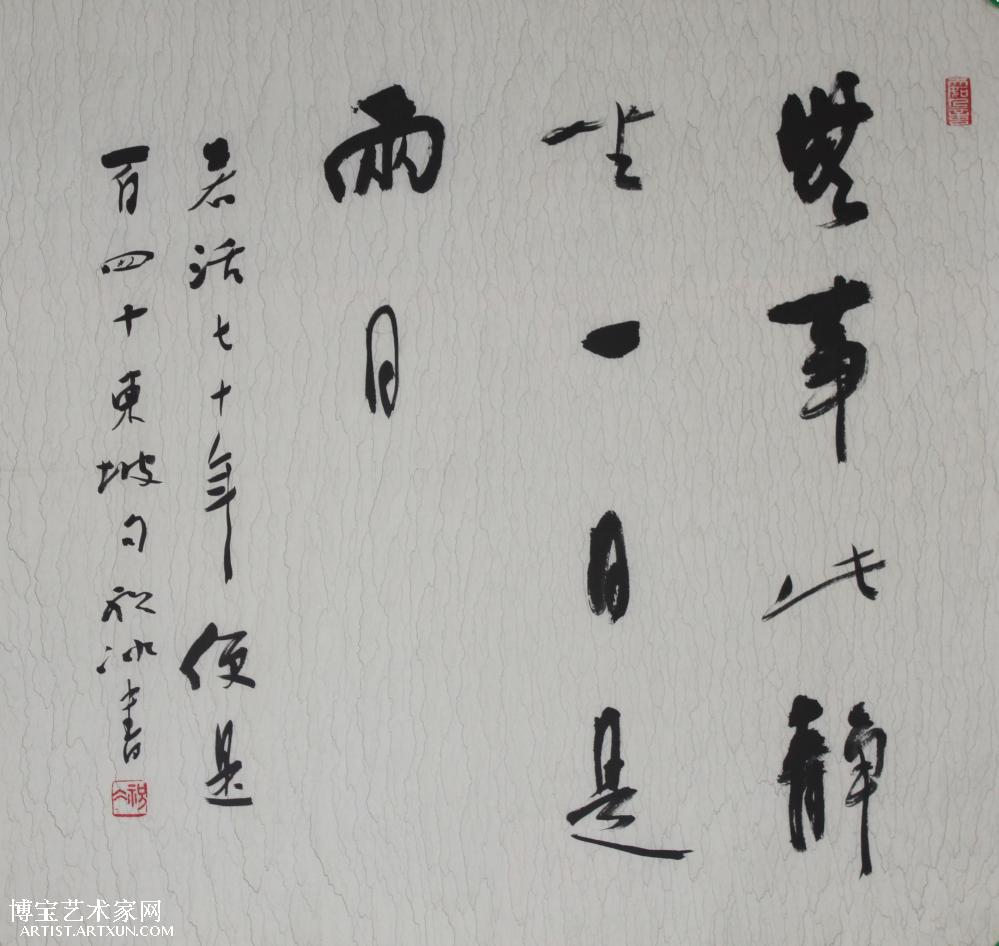 無事此靜
坐一日是
兩日
若活七十年便是
百四十東坡句祝冰書
博宝艺术家网
ARTIST.ARTXUN.COM